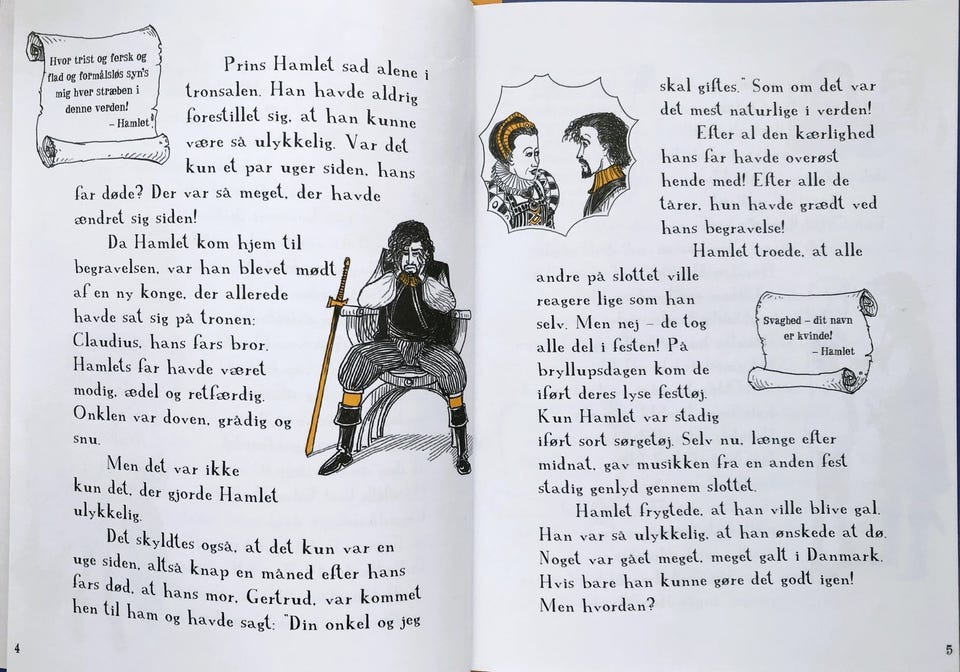 Hvor trist og fersk og
flad og formålsløs syn's
mig hver stræben i
denne verden!
– Hamlet
Prins Hamlet sad alene i
tronsalen. Han havde aldrig
forestillet sig, at han kunne
være så ulykkelig. Var det
kun et par uger siden, hans
far døde? Der var så meget, der havde
ændret sig siden!
Da Hamlet kom hjem til
begravelsen, var han blevet mødt
af en ny konge, der allerede
havde sat sig på tronen:
Claudius, hans fars bror.
Hamlets far havde været
modig, ædel og retfærdig.
Onklen var doven, grådig og
snu.
Men det var ikke
kun det, der gjorde Hamlet
ulykkelig.
Det skyldtes også, at det kun var en
uge siden, altså knap en måned efter hans
fars død, at hans mor, Gertrud, var kommet
hen til ham og havde sagt: "Din onkel og jeg
4
skal giftes." Som om det var
det mest naturlige i verden!
Efter al den kærlighed
hans far havde overøst
hende med! Efter alle de
tårer, hun havde grædt ved
hans begravelse!
Hamlet troede, at alle
andre på slottet ville
reagere lige som han
selv. Men nej – de tog
alle del i festen! På
bryllupsdagen kom de
iført deres lyse festtøj.
Kun Hamlet var stadig
iført sort sørgetøj. Selv nu, længe efter
midnat, gav musikken fra en anden fest
stadig genlyd gennem slottet.
Svaghed – dit navn
er kvinde!
– Hamlet
Hamlet frygtede, at han ville blive gal.
Han var så ulykkelig, at han ønskede at dø.
Noget var gået meget, meget galt i Danmark.
Hvis bare han kunne gøre det godt igen!
Men hvordan?
5